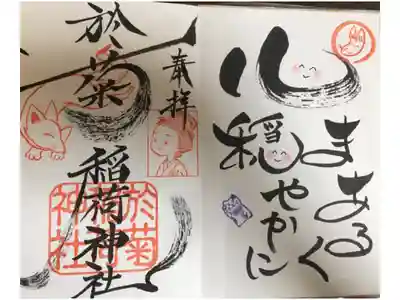 まあるく
心穏やかに
奉拝
於菊稲荷神社
於菊
神社